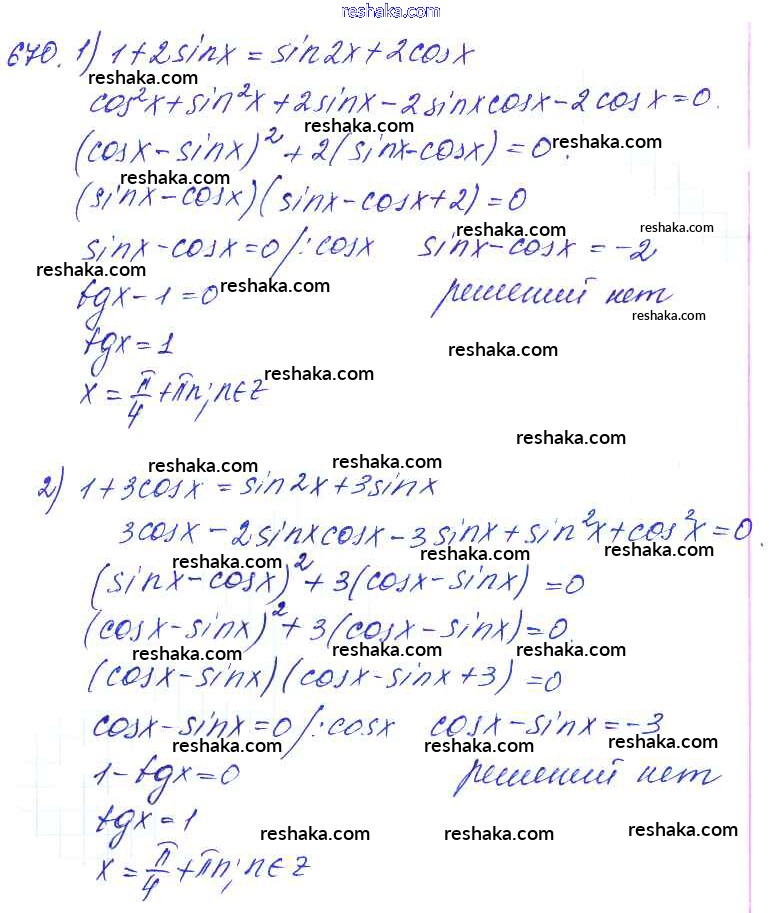 reshaka.com
670. 1) 1+2sinx = sin2x+2cosx
reshaka.com
cos²x+sin²x+2sinx-2sinxcosx-2cosx=0.
reshaka.com
(cosx-sinx)²+2(sinx-cosx)=0.
reshaka.com
reshaka.com
(sinx-cosx)(sinx-cosx+2)=0
reshaka.com reshaka.com
sinx-cosx=0/:cosx sinx-cosx=-2
reshaka.com reshaka.com
tgx-1=0 решений нет
reshaka.com
tgx=1 reshaka.com
reshaka.com
x=π/4+πn; n∈Z
reshaka.com
reshaka.com reshaka.com
2) 1+3cosx=sin2x+3sinx
3cosx-2sinxcosx-3sinx+sin²x+cos²x=0.
reshaka.com reshaka.com reshaka.com
(sinx-cosx)²+3(cosx-sinx)=0
(cosx-sinx)²+3(cosx-sinx)=0.
reshaka.com reshaka.com reshaka.com
(cosx-sinx)(cosx-sinx+3)=0
cosx-sinx=0/:cosx cosx-sinx=-3
reshaka.com reshaka.com reshaka.com
1-tgx=0 решений нет
tgx=1
reshaka.com reshaka.com reshaka.com
x=π/4+πn; n∈Z